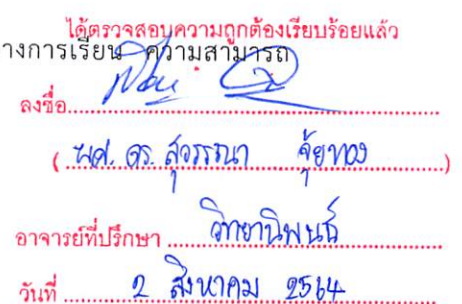 ได้ตรวจสอบความถูกต้องเรียบร้อยแล้ว
างการเรียน ความสามารถ
ลงชื่อ
( ผศ. ดร. สุวรรณา จุ้ยทอง )
อาจารย์ที่ปรึกษา วิทยานิพนธ์
วันที่ 2 สิงหาคม 2564